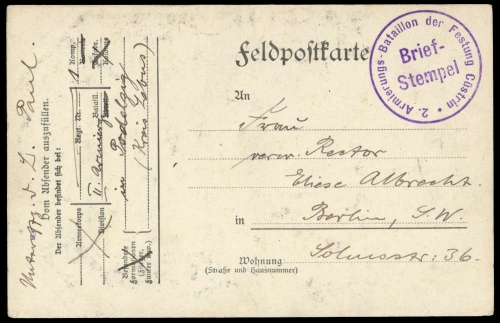 Feldpostkarte
2. Armierungs-Bataillon der Festung Cüstrin •
Brief-
Stempel
An
Frau
verw. Rektor
Eliese Albrecht.
in Berlin, S. W.
Solmsstr: 36.
Wohnung
(Straße und Hausnummer)
Unteroffz. d. L. Paul.
Vom Absender auszufüllen.
Der Absender befindet sich bei:
Armeekorps
Regt. Nr.
1. Komp.
Division
II. Armierungs Bataill.
in Podelzig
(Kreis Lebus)